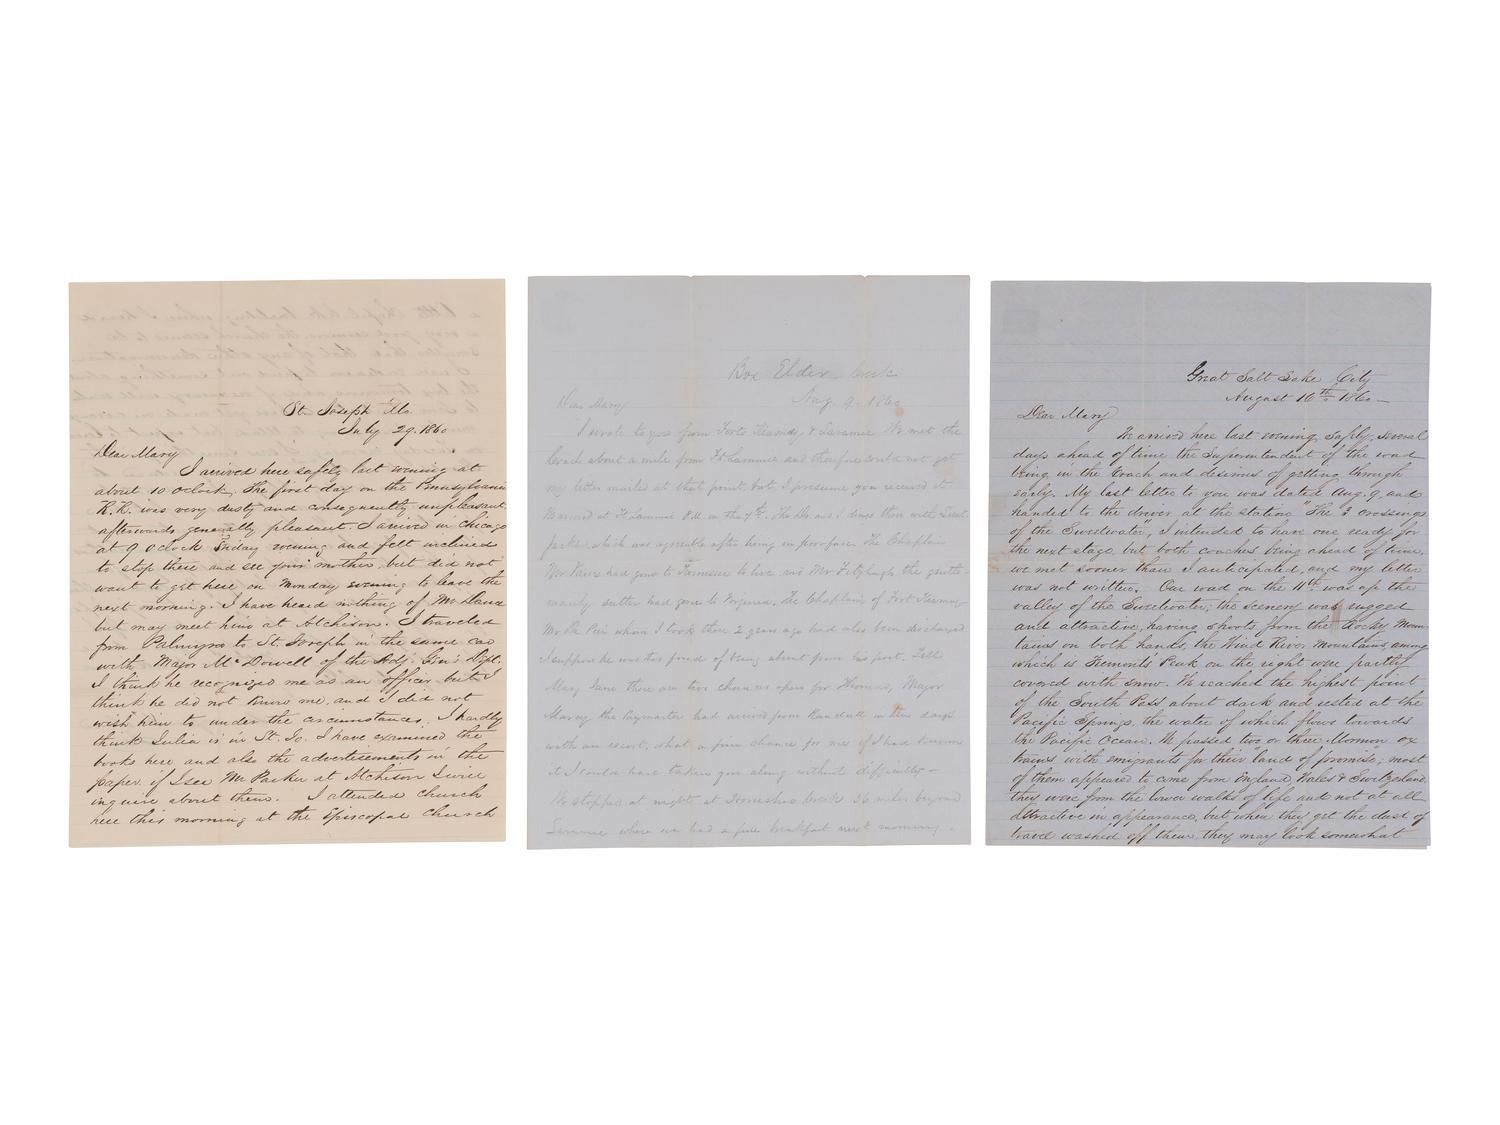 St. Joseph Mo.
July 29. 1860
Dear Mary
I arrived here safely last evening at
about 10 oclock. The first day on the Pennsylvania
R.R. was very dusty and consequently unpleasant
afterwards generally pleasant. I arrived in Chicago
at 9 oclock Friday evening and felt inclined
to stop there and see your mother, but did not
want to get here on Monday evening to leave the
next morning. I have heard nothing of Mr
but may meet him at Atchison. I traveled
from Palmyra to St. Joseph in the same car
with Major McDowell of the Adj. Gen's Dept.
I think he recognized me as an officer but I
think he did not know me, and I did not
wish him to under the circumstances. I hardly
think Julia is in St. Jo. I have examined the
books here and also the advertisements in the
paper. if I see Mr Parker at Atchison I will
inquire about them. I attended church
here this morning at the Episcopal church
Box Elder Creek
Aug. 9. 1860
Dear Mary
I wrote to you from Forts Kearney & Laramie. We met the
coach about a mile from Ft. Laramie and therefore could not get
my letter mailed at that point, but I presume you received it
We arrived at Ft. Laramie P.M. on the 7th. The Dr. and I dined there with Lieut.
which was agreeable after being on poor fare. The Chaplain
Mr had gone to Tennessee to live and Mr Fitzhugh the gentle-
manly sutler had gone to Virginia. The Chaplain of Fort Kearney
Mr whom I took there 2 years ago had also been discharged
I suppose he was too fond of being about from his post. Tell
Mary Jane there are two chances open for Thomas, Major
the Paymaster had arrived from Randall in ten days
with an escort. what a fine chance for me if I had known
it I could have taken you along without difficulty -
We stopped at night at Horseshoe Creek 36 miles beyond
Laramie where we had a fine breakfast next morning.
Great Salt Lake City
August 16th 1860 -
Dear Mary
We arrived here last evening safely, several
days ahead of time the Superintendent of the road
being in the Coach and desirous of getting through
early. My last letter to you was dated Aug. 9. and
handed to the driver at the station "The 3 crossings
of the Sweetwater", I intended to have one ready for
the next stage, but both coaches being ahead of time,
we met sooner than I anticipated, and my letter
was not written. Our road on the 11th was up the
valley of the Sweetwater, the scenery was rugged
and attractive, having shoots from the Rocky Moun-
tains on both hands, the Wind River Mountains, among
which is Fremonts Peak on the right were partly
covered with snow. We reached the highest point
of the South Pass about dark and rested at the
Pacific Springs, the water of which flows towards
the Pacific Ocean. We passed two or three Mormon ox
trains with emigrants for their "land of promise"; most
of them appeared to come from England, Wales & Switzerland
they were from the lower walks of life and not at all
attractive in appearance, but when they get the dust of
travel washed off them, they may look somewhat